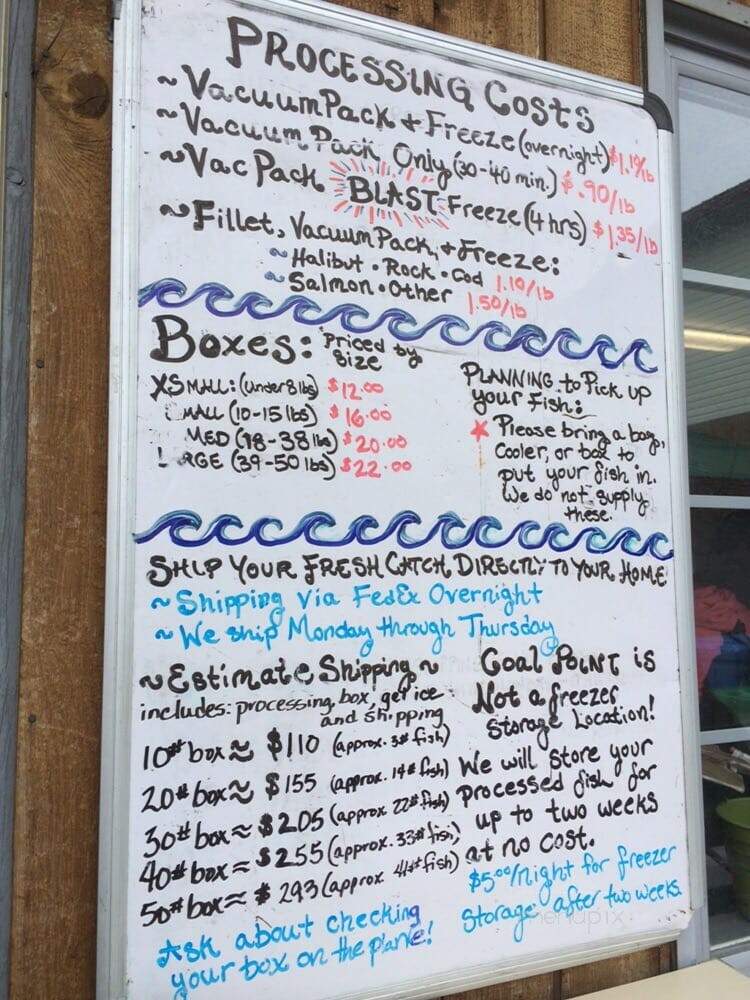 PROCESSING COSTS
~Vacuum Pack + Freeze (overnight) $1.19/lb
~Vacuum Pack Only (30-40 min.) $.90/lb
~Vac Pack BLAST Freeze (4 hrs) $1.35/lb
~Fillet, Vacuum Pack, + Freeze:
~Halibut • Rock • Cod 1.10/lb
~Salmon • Other 1.50/lb
Boxes: Priced by
Size
XSMALL: (under 8 lbs) $12.00
MALL (10-15 lbs) $16.00
MED (18-38 lbs) $20.00
L RGE (39-50 lbs) $22.00
PLANNING to Pick up
your Fish:
* Please bring a bag,
Cooler, or box to
put your fish in.
We do not supply
these.
SHIP YOUR FRESH CATCH DIRECTLY TO YOUR HOME
~Shipping via FedEx Overnight
~We ship Monday through Thursday
~Estimate Shipping~
includes: processing, box, gel ice
and shipping
10# box ≈ $110 (approx. 5# fish)
20# box ≈ $155 (approx. 14# fish)
30# box ≈ $205 (approx 22# fish)
40# box ≈ $255 (approx. 33# fish)
50# box ≈ $293 (approx 44# fish)
Ask about checking
your box on the plane!
Coal POINT is
Not a freezer
Storage Location!
We will store your
processed fish for
up to two weeks
at no cost.
$5.00/night for freezer
storage after two weeks.
menupix